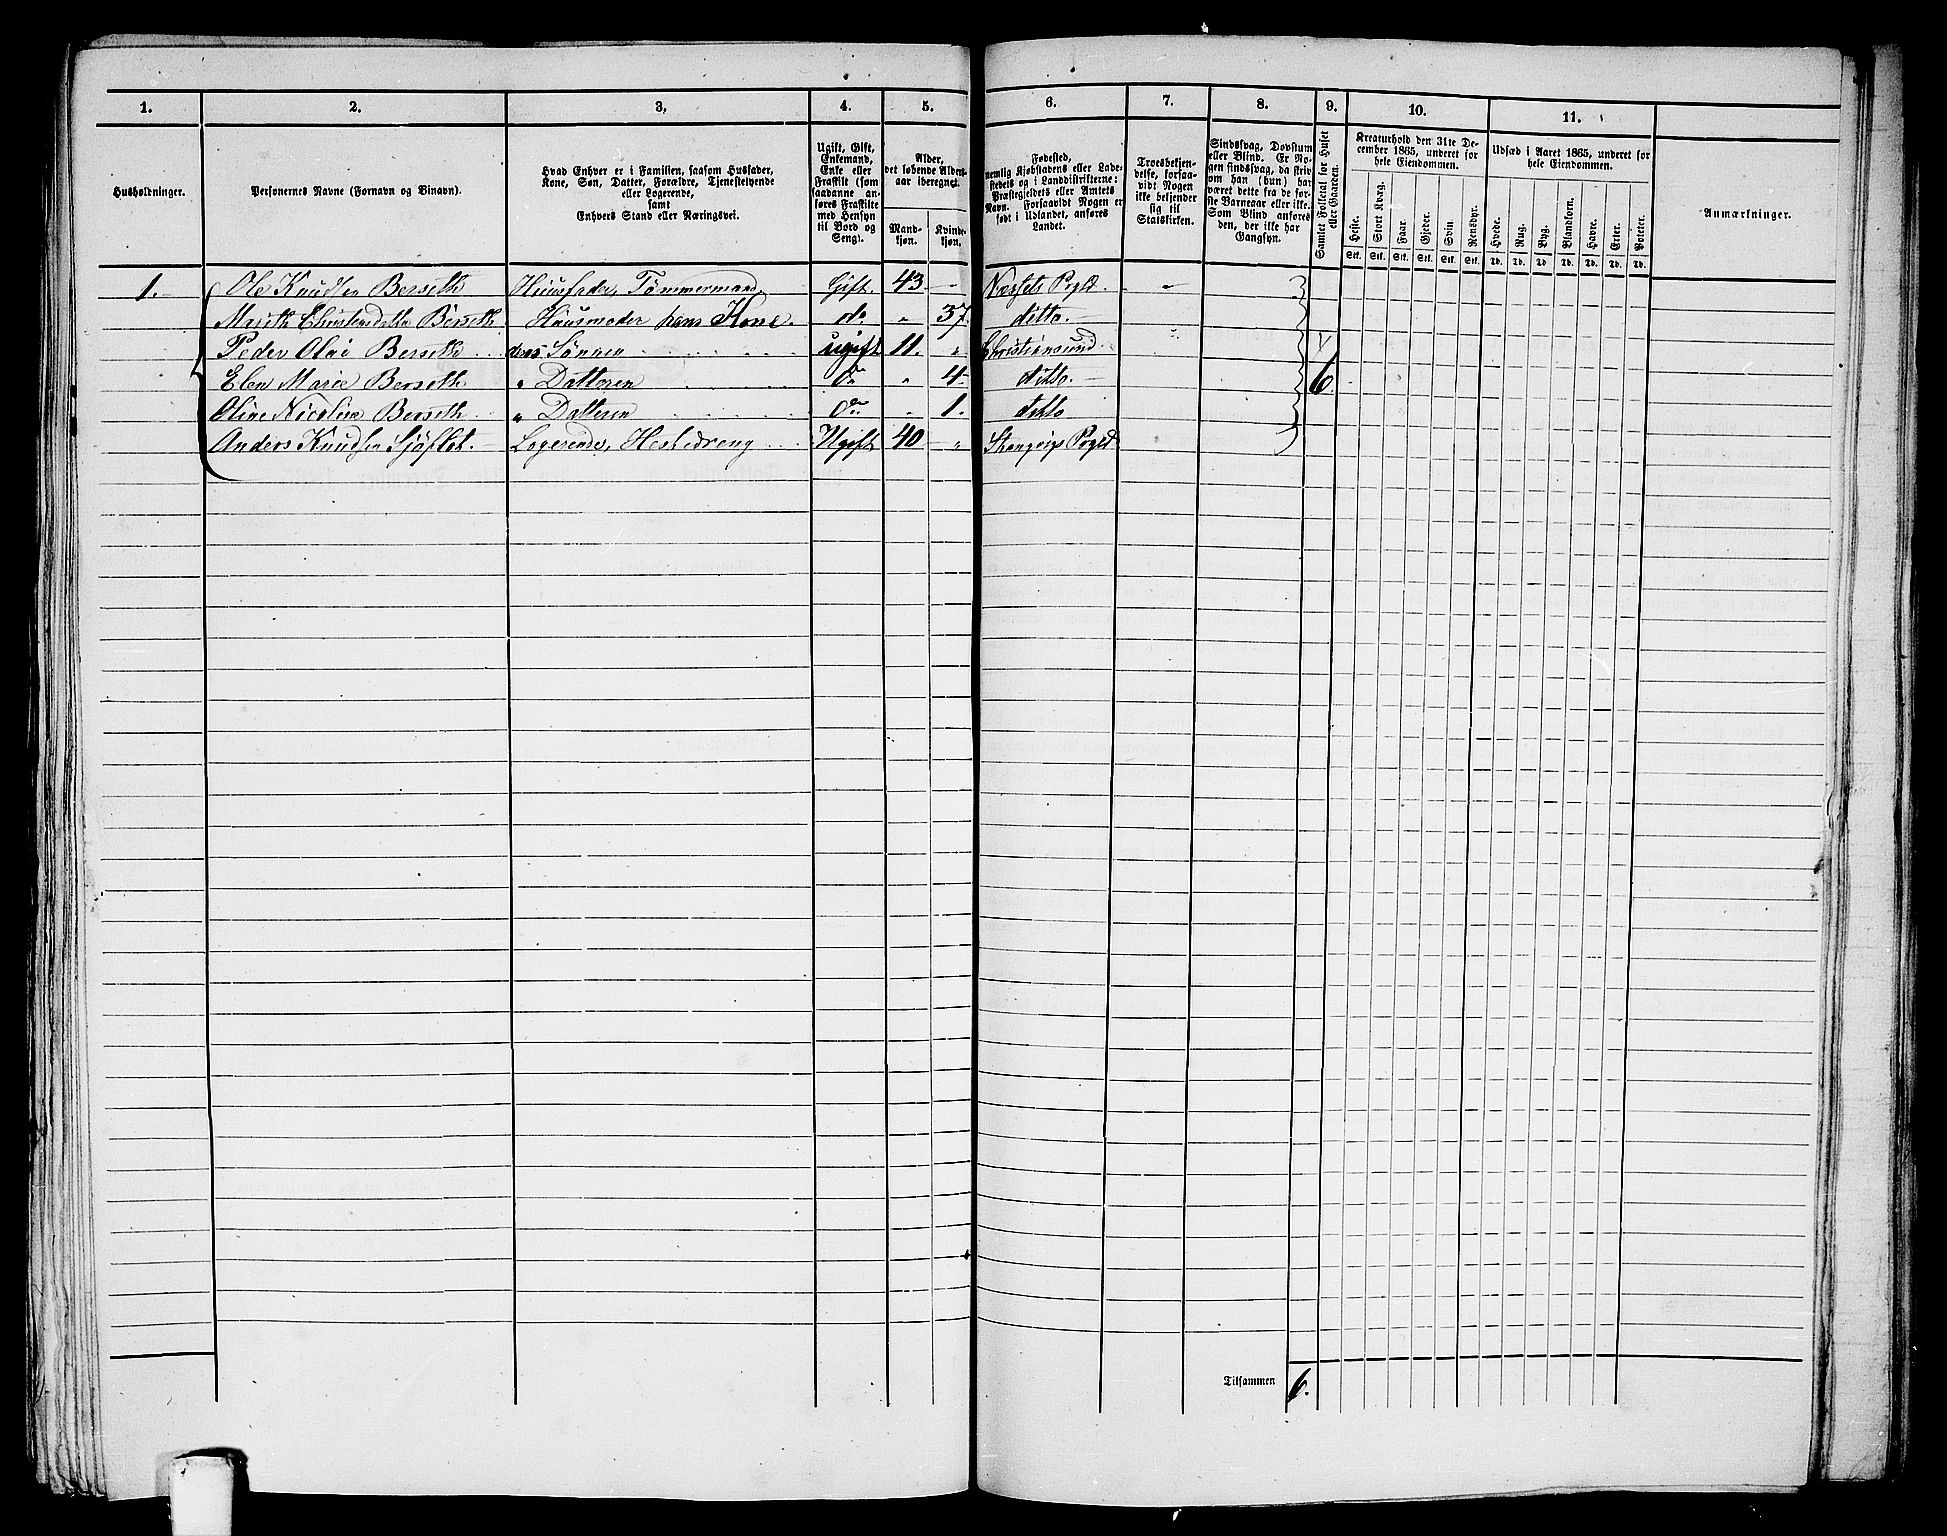 1. 2. 3, 4. 5. 6. 7. 8. 9. 10. 11.
Husholdninger.
Personernes Navne (Fornavn og Binavn).
Hvad Enhver er i Familien, saasom Husfader,
Kone, Søn, Datter, Forældre, Tjenestetyende
eller Logerende,
samt
Enhvers Stand eller Næringsvei.
Ugift, Gift,
Enkemand,
Enke eller
Fraskilt (som
saadanne an-
føres Fraskilte
med Hensyn
til Bord og
Seng).
Alder,
det løbende Alders-
aar iberegnet.
Mand-
kjøn.
Kvinde-
kjøn.
Fødested,
nemlig Kjøbstadens eller Lade-
stedets og i Landdistrikterne:
Præstegjeldets eller Amtets
Navn. Forsaavidt Nogen er
født i Udlandet, anføres
Landet.
Troesbekjen-
delse, forsaa-
vidt Nogen
ikke bekjender
sig til
Statskirken.
Sindssvag, Døvstum
eller Blind. Er No-
gen sindssvag, da skriv
om han (hun) har
været dette fra de før-
ste Barneaar eller ikke.
Som Blind anføres
den, der ikke har
Gangsyn.
Samlet Folketal for Huset
eller Gaarden.
Kreaturhold den 31te De-
cember 1865, underet for
hele Eiendommen.
Heste. Stort Kvæg. Faar. Gjeder. Svin Rensdyr.
Stk. Stk. Stk. Stk. Stk. Stk.
Udsæd i Aaret 1865, underet for
hele Eiendommen.
Hvede. Rug. Byg. Blandkorn. Havre. Erter. Poteter.
Td. Td. Td Td. Td. Td. Td.
Anmærkninger.
1. Ole Knudsen Berseth Huusfader, Tømmermand. Gift. 43 - Næssets Prgld. -
Marith Christensdatter Berseth Huusmoder hans Kone. do " 37. ditto. -
Peder Olai Berseth deres Sønnen ugift 11. " Christiansund "
Elen Marie Berseth " Datteren do " 4 ditto. - 6.
Oline Nicoline Berseth " Datteren do " 1. ditto
Anders Knudsen Sjøflot. Logerende, Hestedreng Ugift 40 - " Stangvigs Prgld
Tilsammen 6.